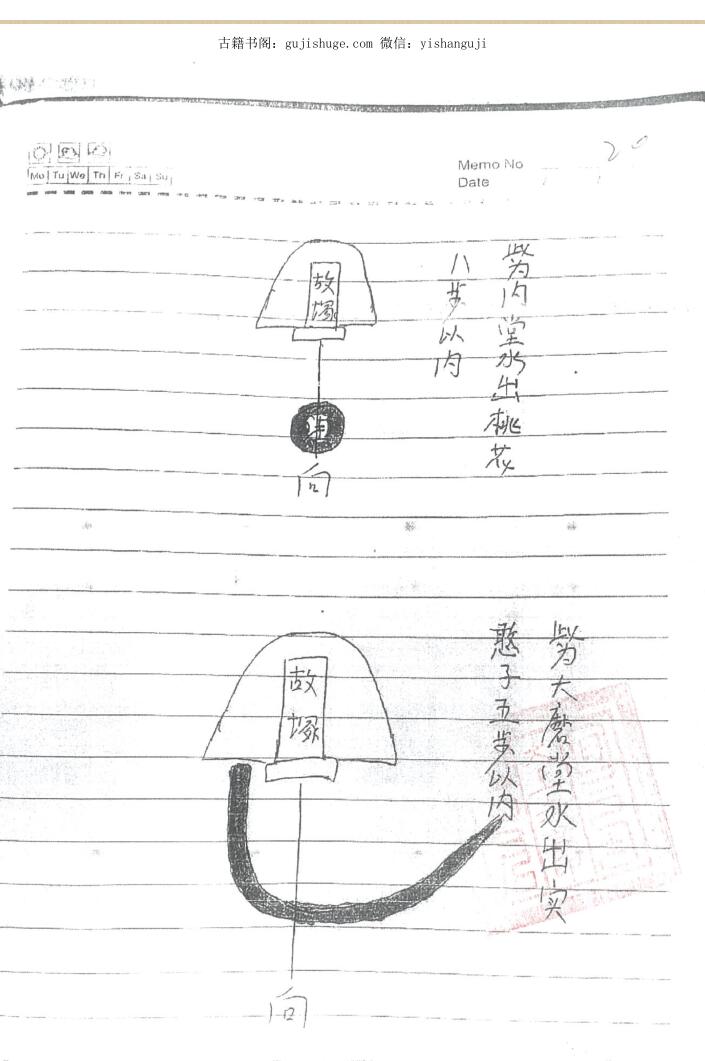 古籍书阁: gujishuge.com 微信: yishanguji
Memo No
20
Mo Tu We Th Fr Sa Su
Date
此为内堂水出桃花
八步以内
故塚
向
此为大磨堂水出实
憨子五步以内
故塚
向